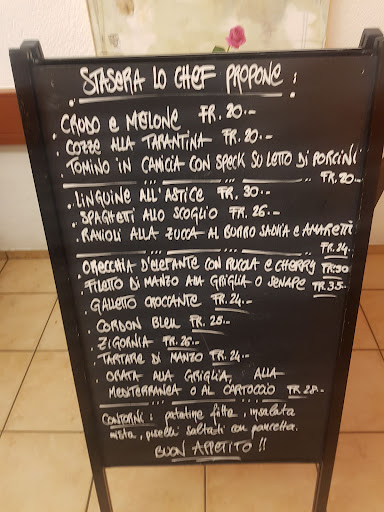 STASERA LO CHEF PROPONE :
. CRUDO e MELONE FR. 20.-
. COZZE ALLA TARANTINA FR. 20.-
. TOMINO IN CAMICIA CON SPECK SU LETTO DI PORCINI
FR. 20.-
. LINGUINE ALL'ASTICE FR. 30.-
. SPAGHETTI ALLO SCOGLIO FR. 26.-
. RAVIOLI ALLA ZUCCA AL BURRO SALVIA e AMARETTI
FR. 24.-
. ORECCHIA D'ELEFANTE CON RUCOLA e CHERRY FR.30
. FILETTO DI MANZO ALLA GRIGLIA O SENAPE FR.35-
. GALLETTO CROCCANTE FR. 24.-
. CORDON BLEU FR. 25.-
. ZIGORNIA FR. 26.-
. TARTARE DI MANZO FR. 24.-
. ORATA ALLA GRIGLIA, ALLA
MEDITERRANEA O AL CARTOCCIO FR. 28.-
CONTORNI : patatine fritte, insalata
mista, piselli saltati con pancetta.
BUON APPETITO !!